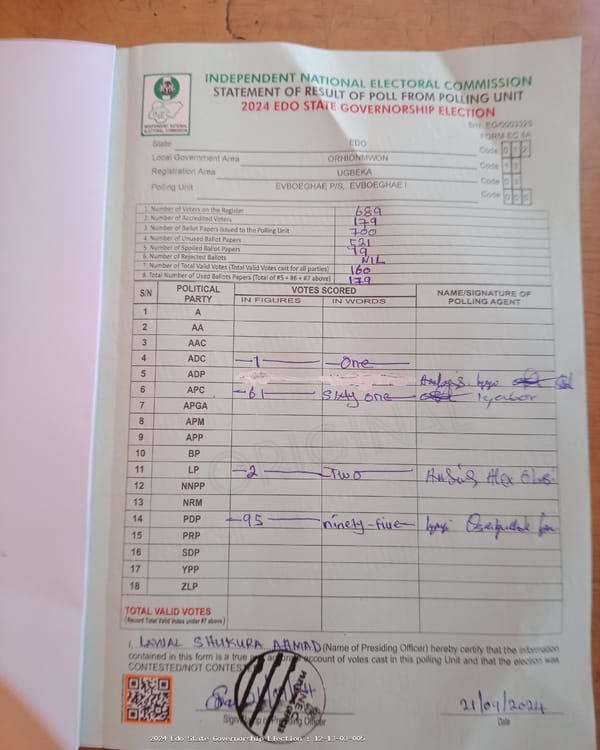 INDEPENDENT NATIONAL ELECTORAL COMMISSION
STATEMENT OF RESULT OF POLL FROM POLLING UNIT
2024 EDO STATE GOVERNORSHIP ELECTION
INDEPENDENT NATIONAL ELECTORAL COMMISSION
FORM EC 8A
State EDO Code 0 1 2
Local Government Area ORHIONMWON Code 1 3
Registration Area UGBEKA Code 0 3
Polling Unit EVBOEGHAE P/S, EVBOEGHAE I Code 0 0 5
1. Number of Voters on the Register 689
2. Number of Accredited Voters 179
3. Number of Ballot Papers Issued to the Polling Unit 700
4. Number of Unused Ballot Papers 521
5. Number of Spoiled Ballot Papers 19
6. Number of Rejected Ballots NIL
7. Number of Total Valid Votes (Total Valid Votes cast for all parties) 160
8. Total Number of Used Ballots Papers (Total of #5 + #6 + #7 above) 179
S/N POLITICAL PARTY VOTES SCORED NAME/SIGNATURE OF POLLING AGENT
IN FIGURES IN WORDS
1 A
2 AA
3 AAC
4 ADC 1 One
5 ADP
6 APC 61 Sixty one
7 APGA
8 APM
9 APP
10 BP
11 LP 2 Two
12 NNPP
13 NRM
14 PDP 95 ninety-five
15 PRP
16 SDP
17 YPP
18 ZLP
ORIGINAL
TOTAL VALID VOTES
(Record Total Valid Votes under #7 above)
I, LAWAL SHUKURA AHMAD (Name of Presiding Officer) hereby certify that the information
contained in this form is a true and accurate account of votes cast in this polling Unit and that the election was
CONTESTED/NOT CONTESTED
21/09/2024
Officer Date
2024 Edo State Governorship Election : 12-13-03-005